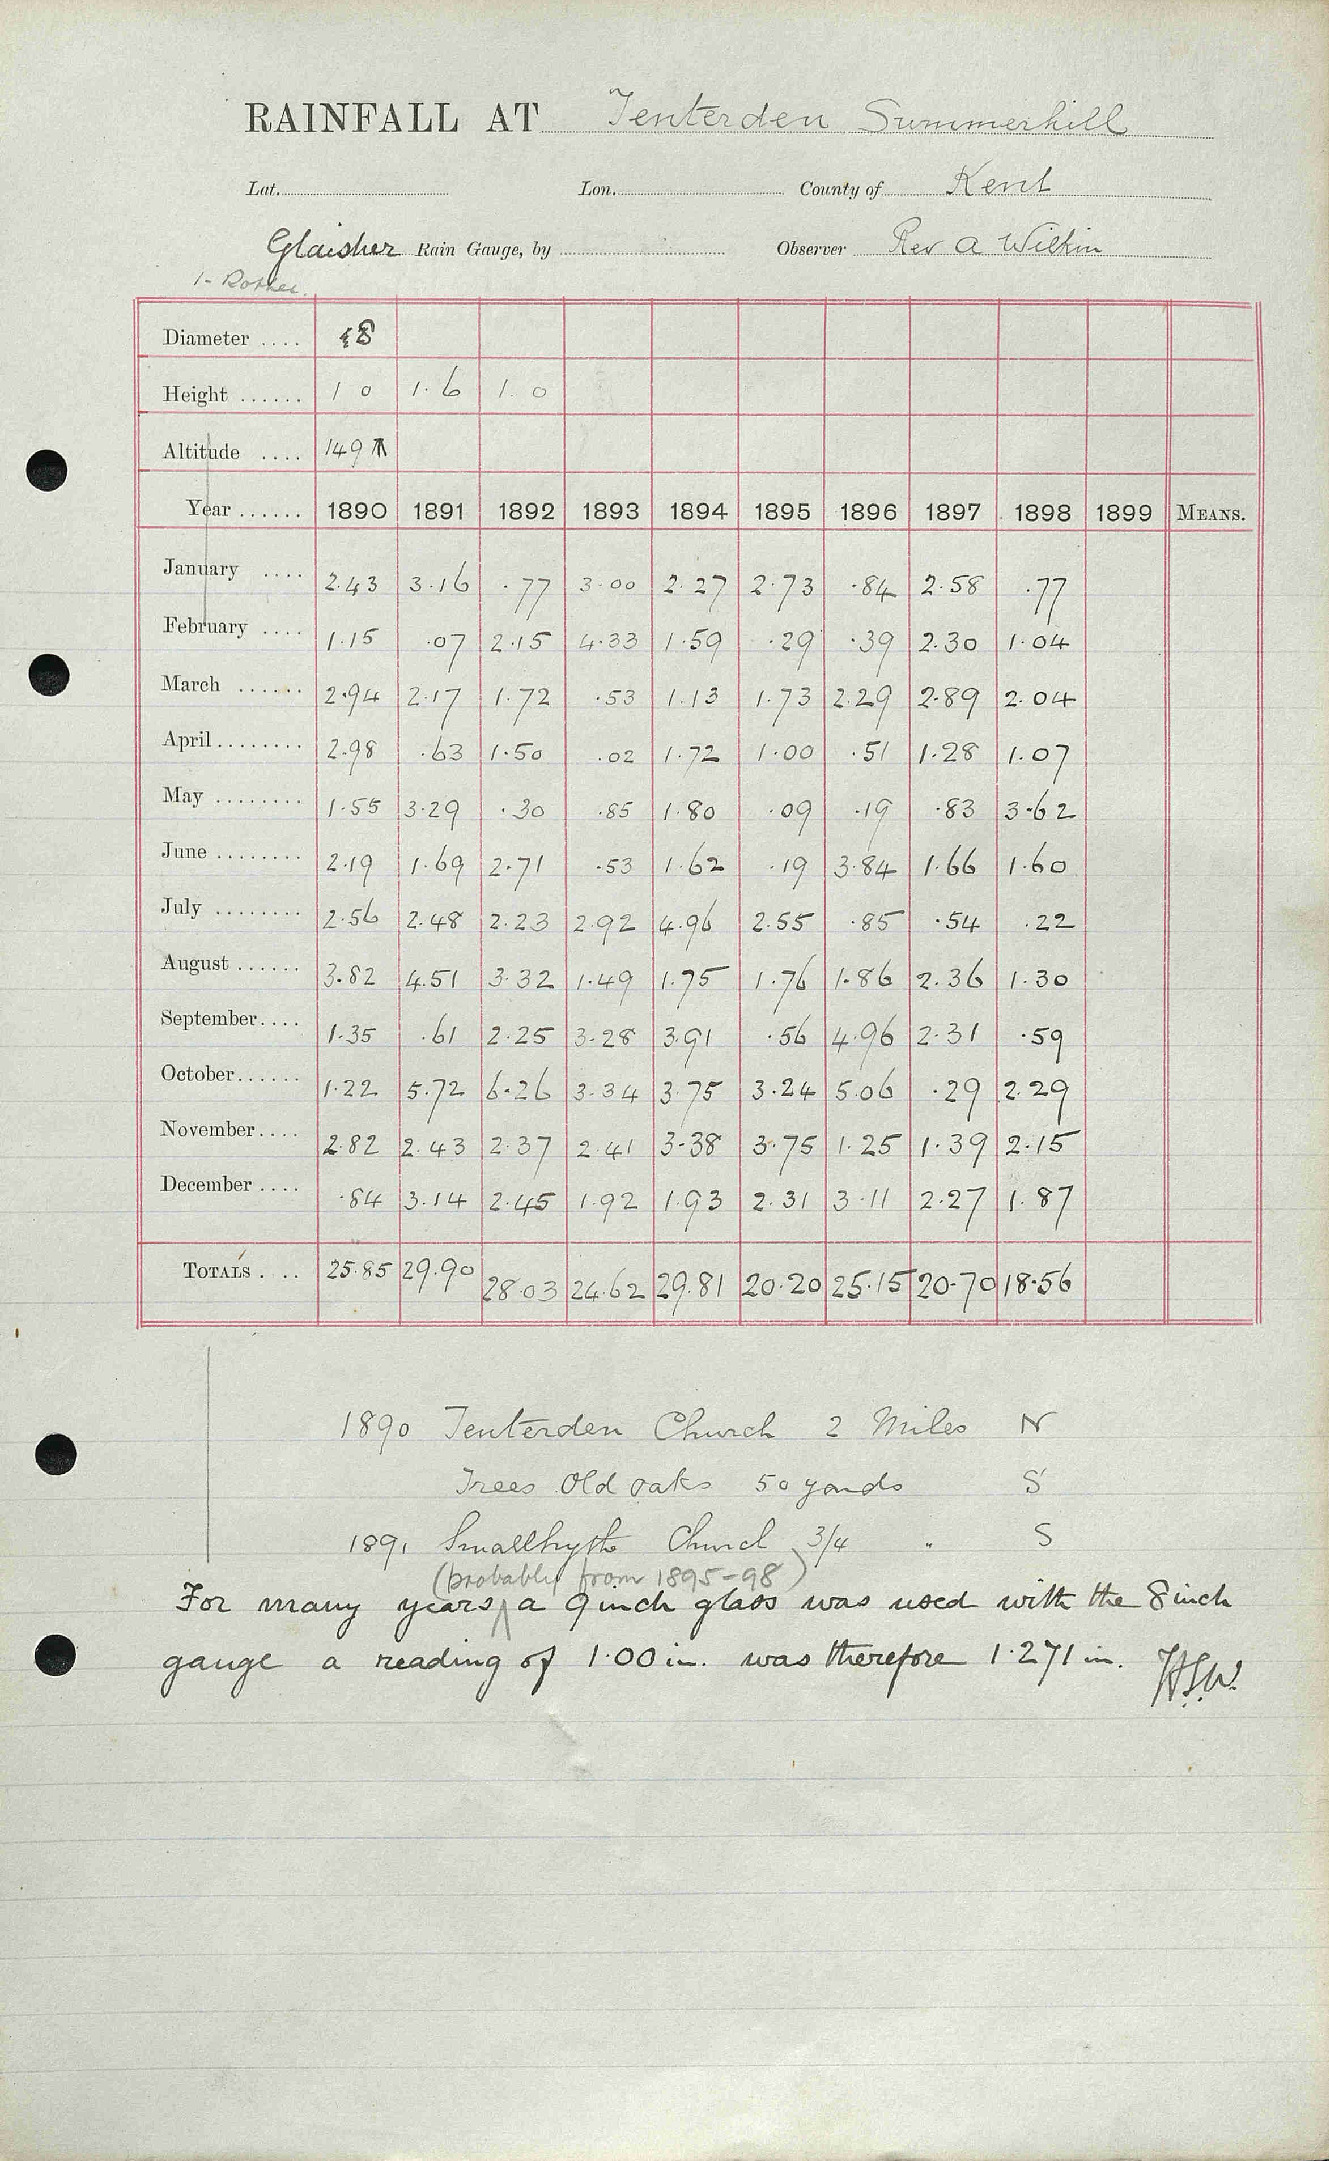 RAINFALL AT Tenterden Summerhill
Lat. Lon. County of Kent
Glaisher Rain Gauge, by Observer Rev A Wilkin
1- Rother.
Diameter .... 8
Height ...... 1 0 1.6 1. 0
Altitude .... 149
Year ...... 1890 1891 1892 1893 1894 1895 1896 1897 1898 1899 MEANS.
January .... 2.43 3.16 .77 3.00 2.27 2.73 .84 2.58 .77
February .... 1.15 .07 2.15 4.33 1.59 .29 .39 2.30 1.04
March ...... 2.94 2.17 1.72 .53 1.13 1.73 2.29 2.89 2.04
April ........ 2.98 .63 1.50 .02 1.72 1.00 .51 1.28 1.07
May ........ 1.55 3.29 .30 .85 1.80 .09 .19 .83 3.62
June ........ 2.19 1.69 2.71 .53 1.62 .19 3.84 1.66 1.60
July ........ 2.56 2.48 2.23 2.92 4.96 2.55 .85 .54 .22
August ...... 3.82 4.51 3.32 1.49 1.75 1.76 1.86 2.36 1.30
September.... 1.35 .61 2.25 3.28 3.91 .56 4.96 2.31 .59
October...... 1.22 5.72 6.26 3.34 3.75 3.24 5.06 .29 2.29
November.... 2.82 2.43 2.37 2.41 3.38 3.75 1.25 1.39 2.15
December .... .84 3.14 2.45 1.92 1.93 2.31 3.11 2.27 1.87
TOTALS .... 25.85 29.90 28.03 24.62 29.81 20.20 25.15 20.70 18.56
1890 Tenterden Church 2 Miles N
Trees Old oaks 50 yards S
1891 Smallhythe Church 3/4 " S
(probably from 1895-98)
For many years a 9 inch glass was used with the 8 inch
gauge a reading of 1.00 in. was therefore 1.271 in. H.S.W.